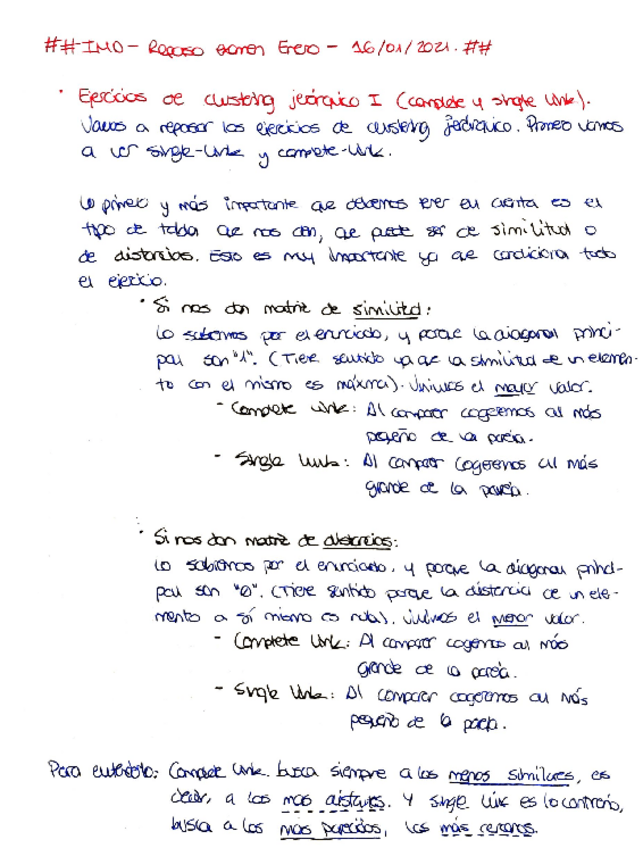 ##IMD - Reposo examen Enero - 16/01/2021.##
· Ejercicios de clustering jerárquico I (complete y single link).
Vamos a reposar los ejercicios de clustering jerárquico. Primero vamos
a ver single-link y complete-link.
Lo primero y más importante que debemos tener en cuenta es el
tipo de tabla que nos dan, que puede ser de similitud o
de distancias. Esto es muy importante ya que condiciona todo
el ejercicio.
· Si nos dan matriz de similitud:
Lo sabemos por el enunciado, y porque la diagonal princi-
pal son "1". (Tiene sentido ya que la similitud de un elemen-
to con el mismo es máxima). Unimos el mayor valor.
- Complete link: Al comparar cogeremos al más
pequeño de la pareja.
- Single link: Al comparar cogeremos al más
grande de la pareja.
· Si nos dan matriz de distancias:
Lo sabremos por el enunciado, y porque la diagonal princi-
pal son "0". (Tiene sentido porque la distancia de un ele-
mento a sí mismo es nula). Unimos el menor valor.
- Complete link: Al comparar cogemos al más
grande de la pareja.
- Single link: Al comparar cogeremos al más
pequeño de la pareja.
Para entenderlo: Complete link busca siempre a los menos similares, es
decir, a los más distantes. Y single link es lo contrario,
busca a los más parecidos, los más cercanos.